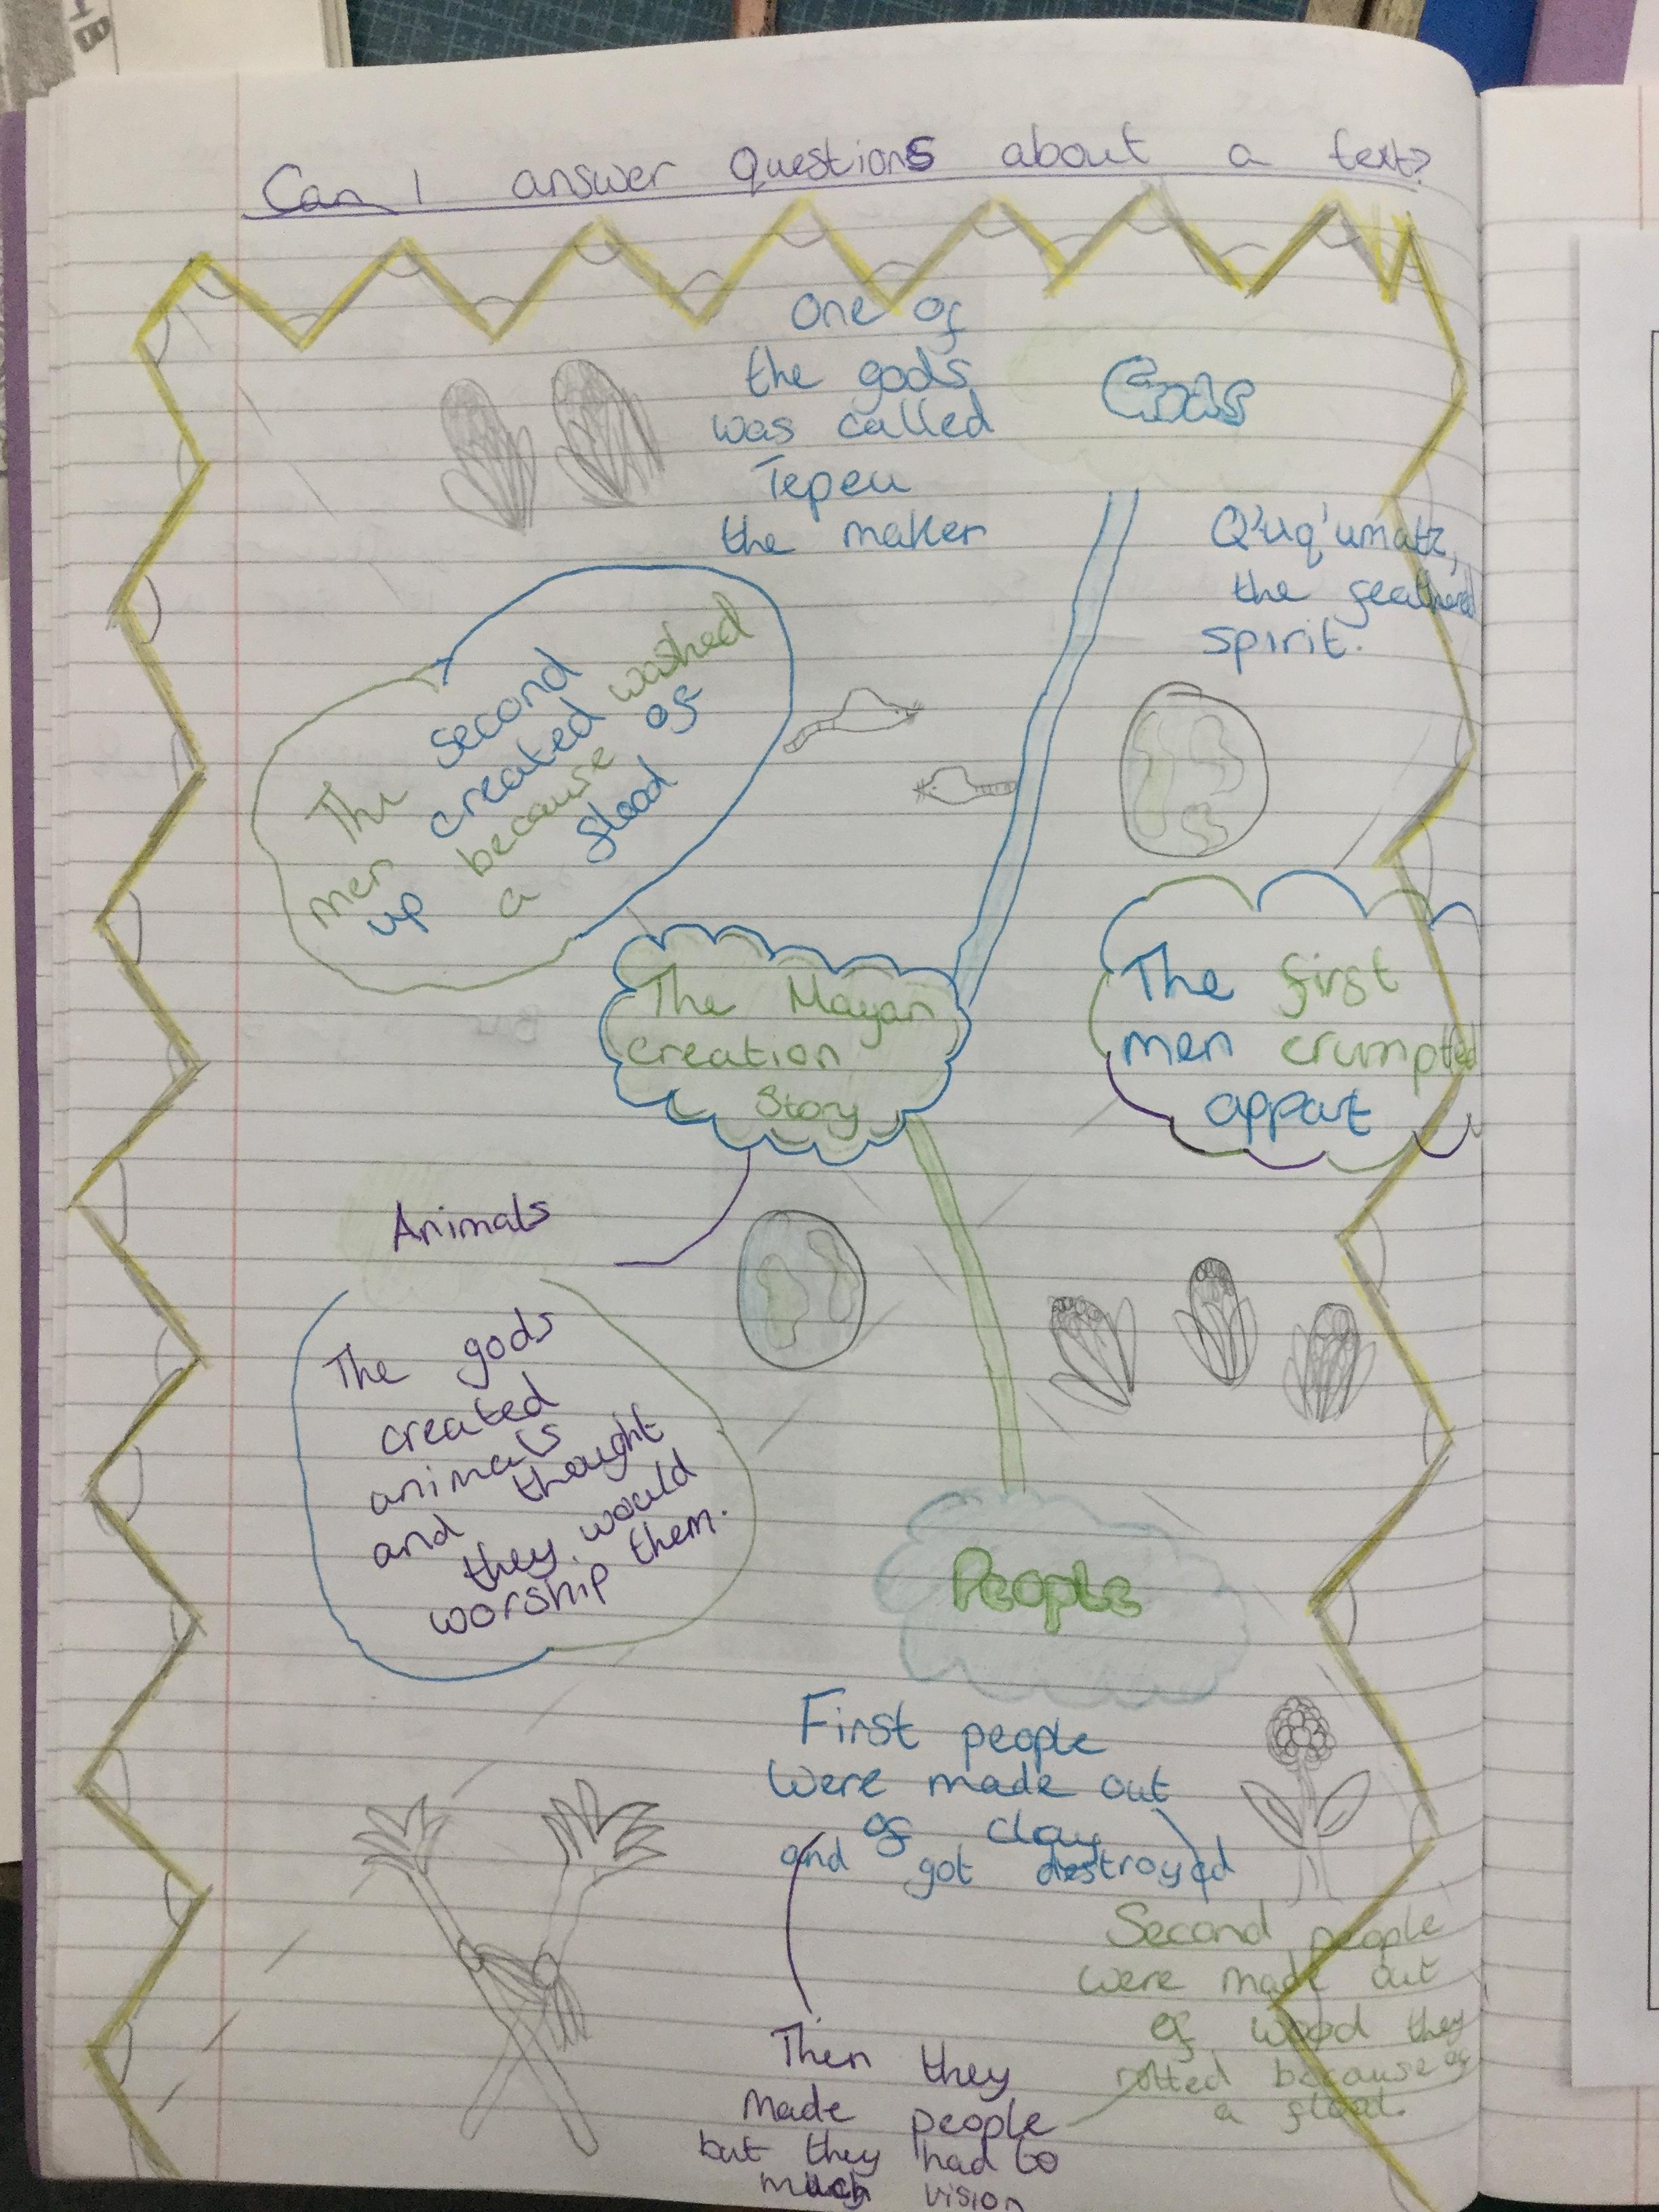 Can I answer Questions about a text?
One of
the gods
was called
Tepeu
the maker
Gods
Q'uq'umatz,
the feathered
spirit.
The second
men created washed
up because of
a flood
The Mayan
creation
Story
The first
men crumpted
appart
Animals
The gods
created
animals
and thought
they would
worship them.
People
First people
were made out
of clay
and got destroyed
Second people
were made out
of wood they
rotted because of
a flood.
Then they
made people
but they had to
much vision